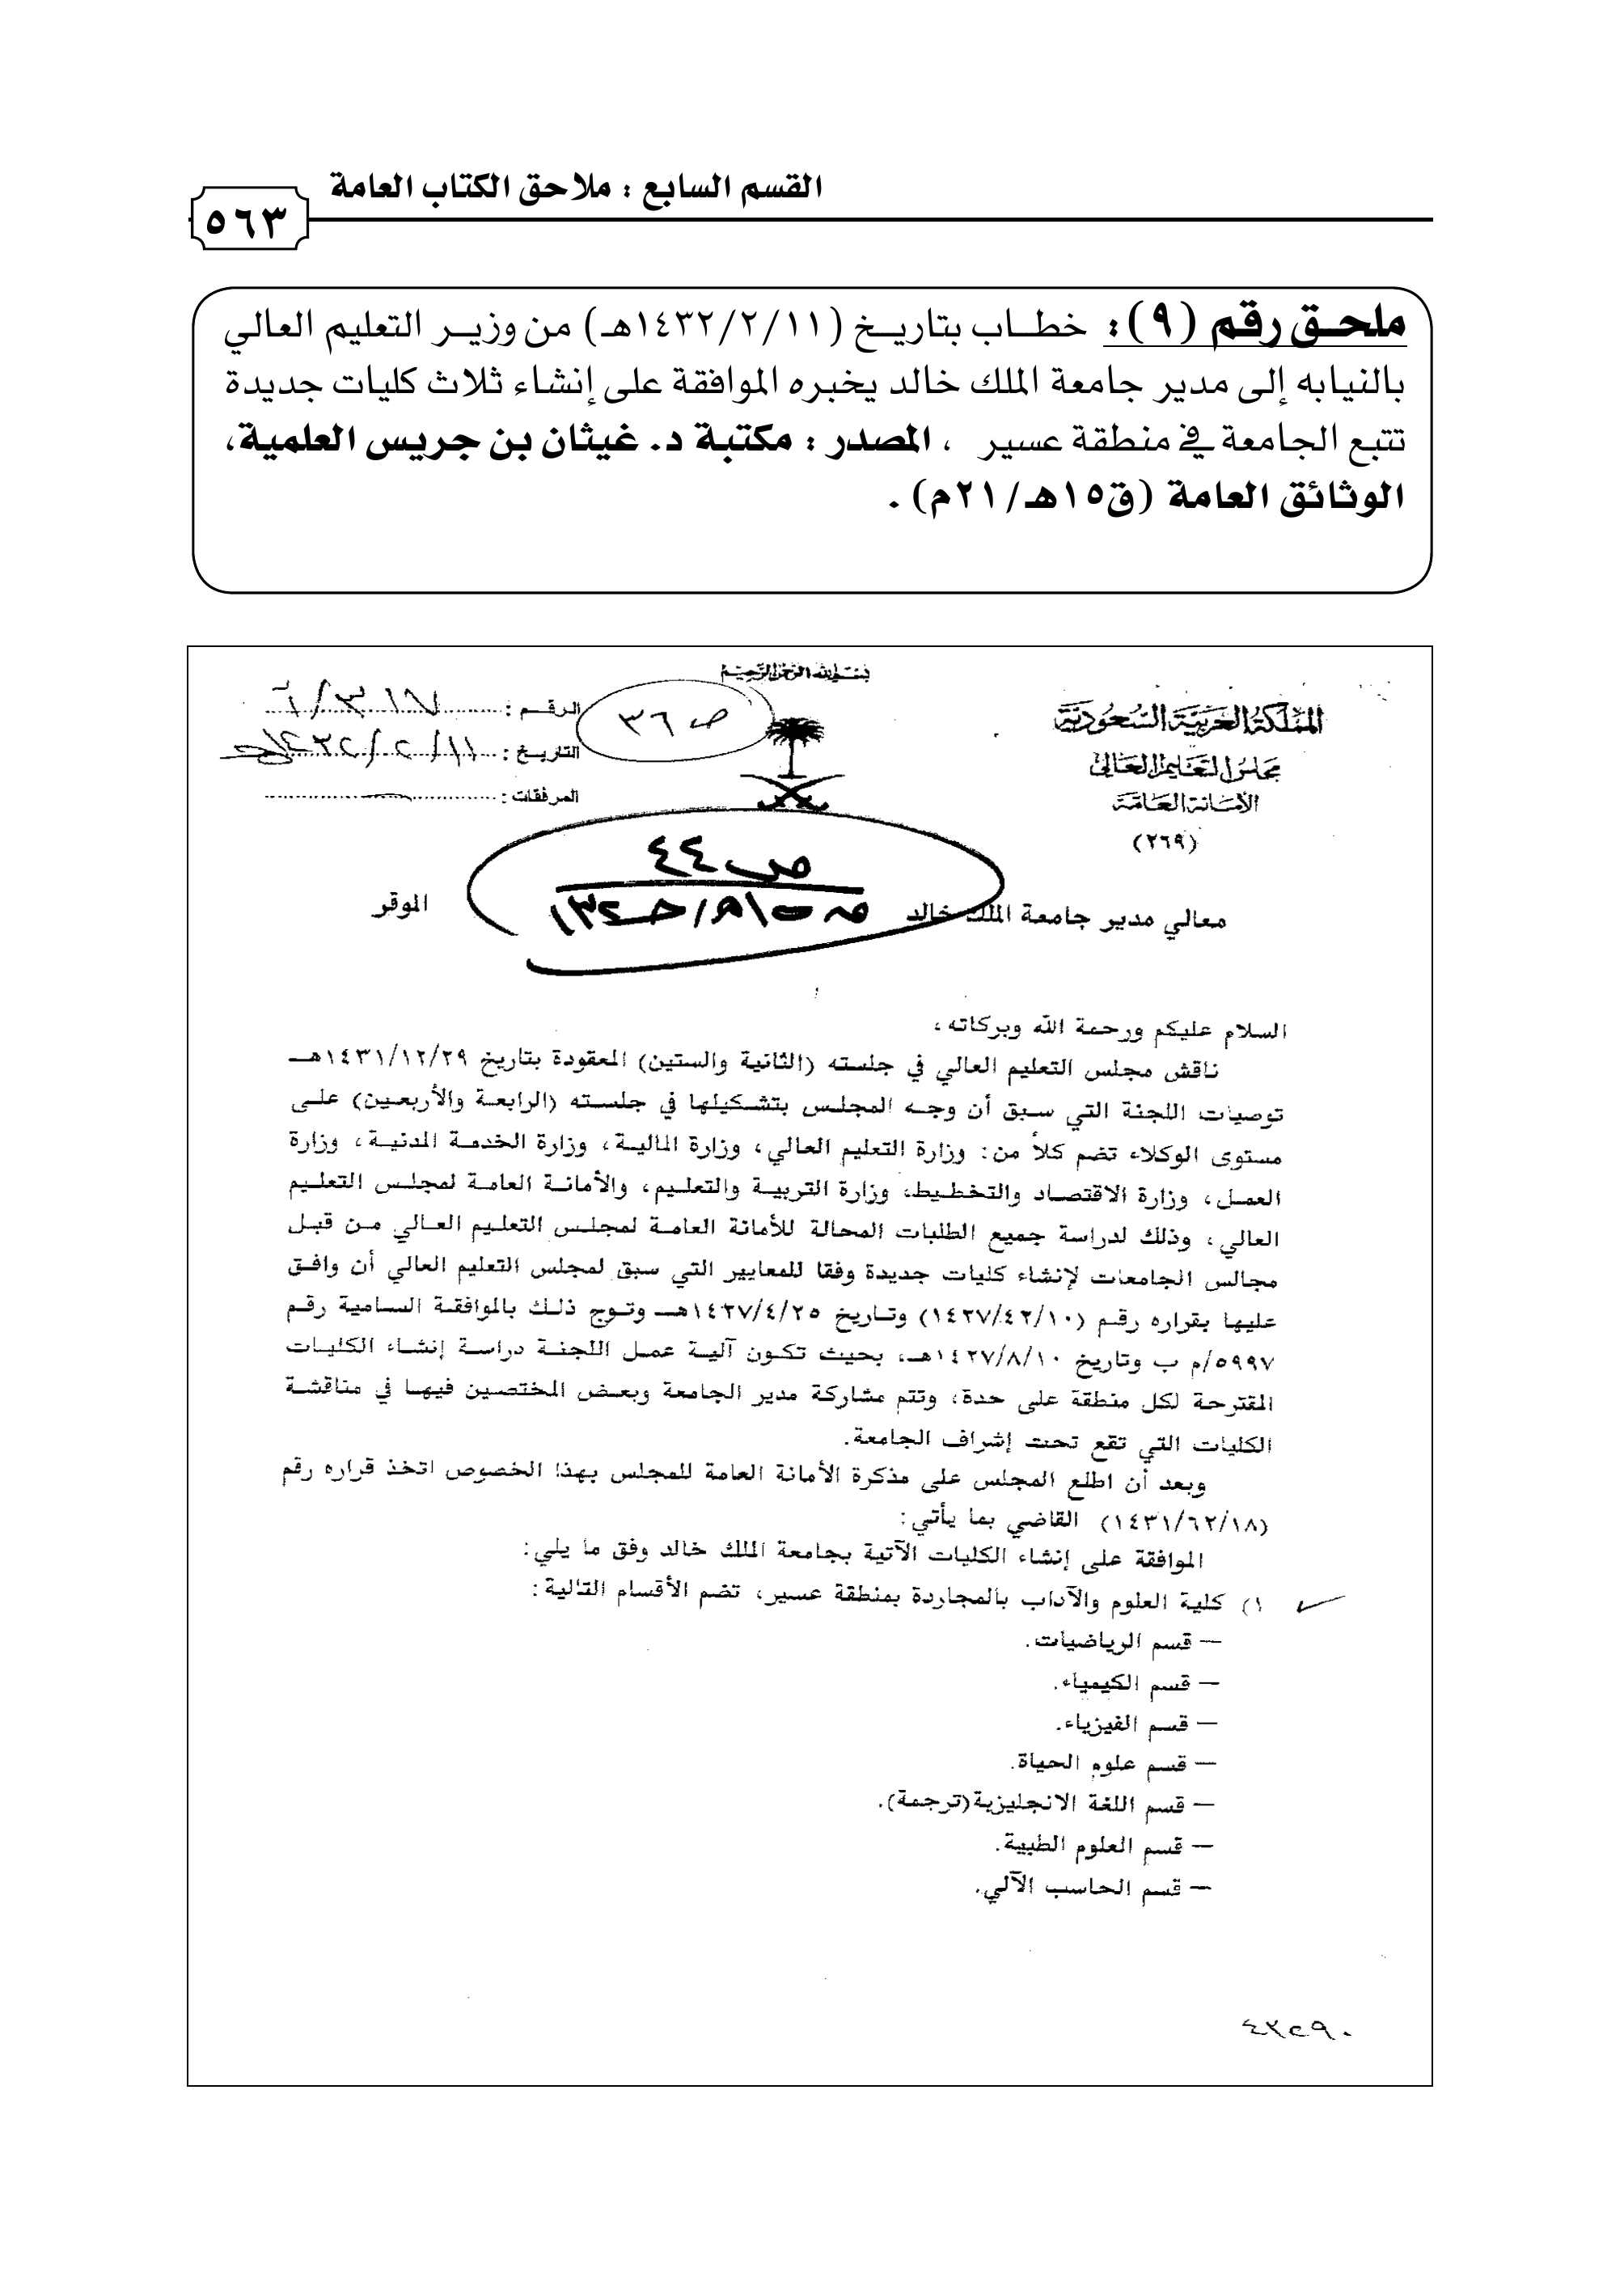 القسم السابع : ملاحق الكتاب العامة
٥٦٣
ملحـق رقم (٩): خطـاب بتاريـخ (١٤٣٢/٢/١١هـ) من وزيـر التعليم العالي
بالنيابه إلى مدير جامعة الملك خالد يخبره الموافقة على إنشاء ثلاث كليات جديدة
تتبع الجامعة في منطقة عسير ، المصدر : مكتبة د. غيثان بن جريس العلمية،
الوثائق العامة (ق١٥هـ/٢١م) .
بسم الله الرحمن الرحيم
المملكة العربية السعودية
مجلس التعليم العالي
الأمانة العامة
(٢٦٩)
الرقـم :
التاريـخ : ١٤٣٢/٢/١١هـ
المرفقات :
ص ٣٦
ص ٤٤
معالي مدير جامعة الملك خالد الموقر
السلام عليكم ورحمة الله وبركاته ،
ناقش مجلس التعليم العالي في جلسته (الثانية والستين) المعقودة بتاريخ ١٤٣١/١٢/٢٩هـ
توصيات اللجنة التي سبق أن وجه المجلس بتشكيلها في جلسته (الرابعة والأربعين) على
مستوى الوكلاء تضم كلاً من: وزارة التعليم العالي، وزارة المالية، وزارة الخدمة المدنية، وزارة
العمل، وزارة الاقتصاد والتخطيط، وزارة التربية والتعليم، والأمانة العامة لمجلس التعليم
العالي، وذلك لدراسة جميع الطلبات المحالة للأمانة العامة لمجلس التعليم العالي من قبل
مجالس الجامعات لإنشاء كليات جديدة وفقا للمعايير التي سبق لمجلس التعليم العالي أن وافق
عليها بقراره رقم (١٤٢٧/٤٢/١٠) وتاريخ ١٤٢٧/٤/٢٥هـ وتوج ذلك بالموافقة السامية رقم
٥٩٩٧/م ب وتاريخ ١٤٢٧/٨/١٠هـ، بحيث تكون آلية عمل اللجنة دراسة إنشاء الكليات
المقترحة لكل منطقة على حدة، وتتم مشاركة مدير الجامعة وبعض المختصين فيها في مناقشة
الكليات التي تقع تحت إشراف الجامعة.
وبعد أن اطلع المجلس على مذكرة الأمانة العامة للمجلس بهذا الخصوص اتخذ قراره رقم
(١٤٣١/٦٢/١٨) القاضي بما يأتي:
الموافقة على إنشاء الكليات الآتية بجامعة الملك خالد وفق ما يلي:
١) كلية العلوم والآداب بالمجاردة بمنطقة عسير، تضم الأقسام التالية:
– قسم الرياضيات.
– قسم الكيمياء.
– قسم الفيزياء.
– قسم علوم الحياة.
– قسم اللغة الانجليزية(ترجمة).
– قسم العلوم الطبية.
– قسم الحاسب الآلي.